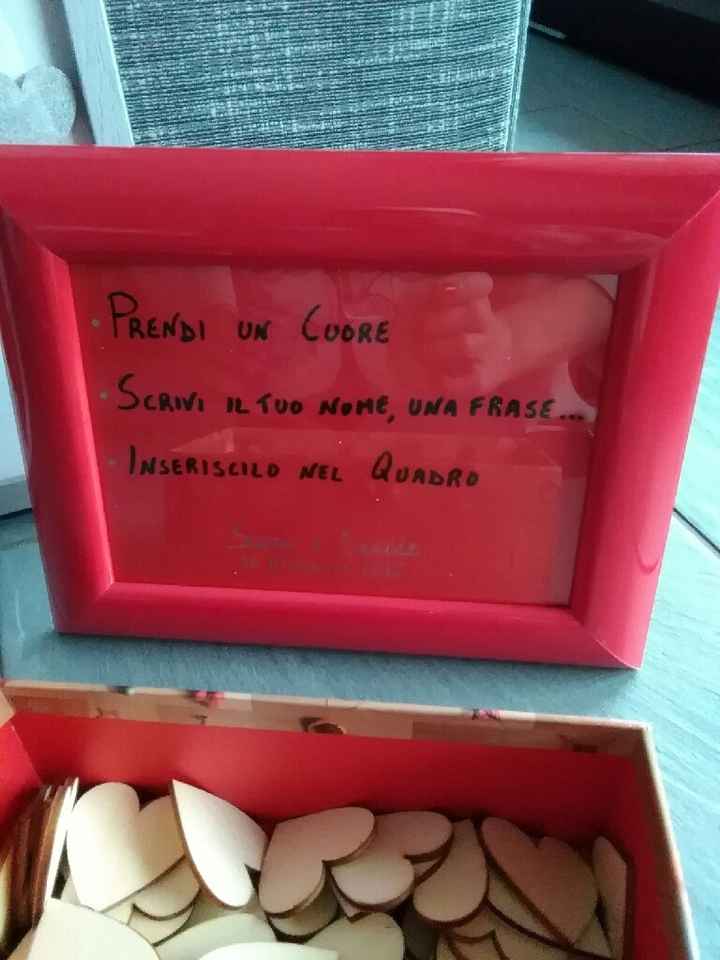 • PRENDI UN CUORE
• SCRIVI IL TUO NOME, UNA FRASE...
• INSERISCILO NEL QUADRO